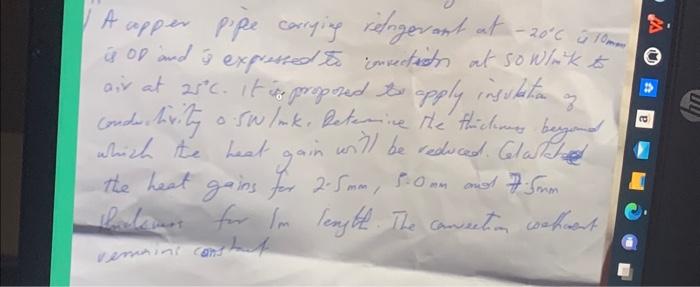 A copper pipe carrying refrigerant at -20°C is 10mm
is OD and is expressed to convection at 50 W/m²K to
air at 25°C. It is proposed to apply insulation of
conductivity 0.5W/mk. Determine the thickness beyond
which the heat gain will be reduced. Calculated
the heat gains for 2.5mm, 5.0mm and 7.5mm
thickness for 1m length. The convection coefficient
remains constant